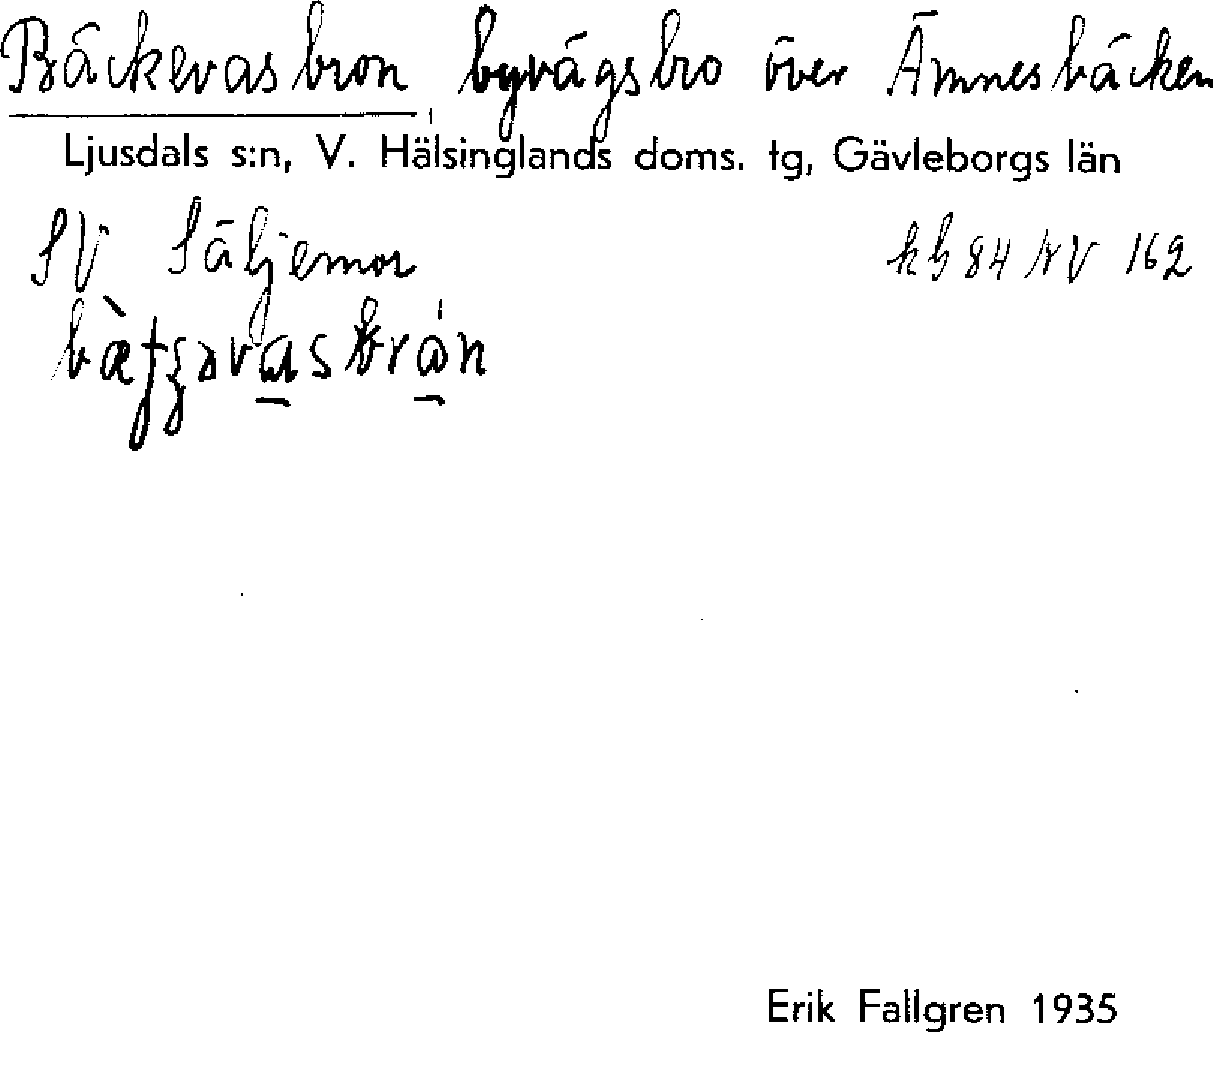 Bäckevasbron, byvägsbro över Ämnesbäcken
Ljusdals s:n, V. Hälsinglands doms. tg, Gävleborgs län
SV Säljemor kb 84 NV 162
Erik Fallgren 1935